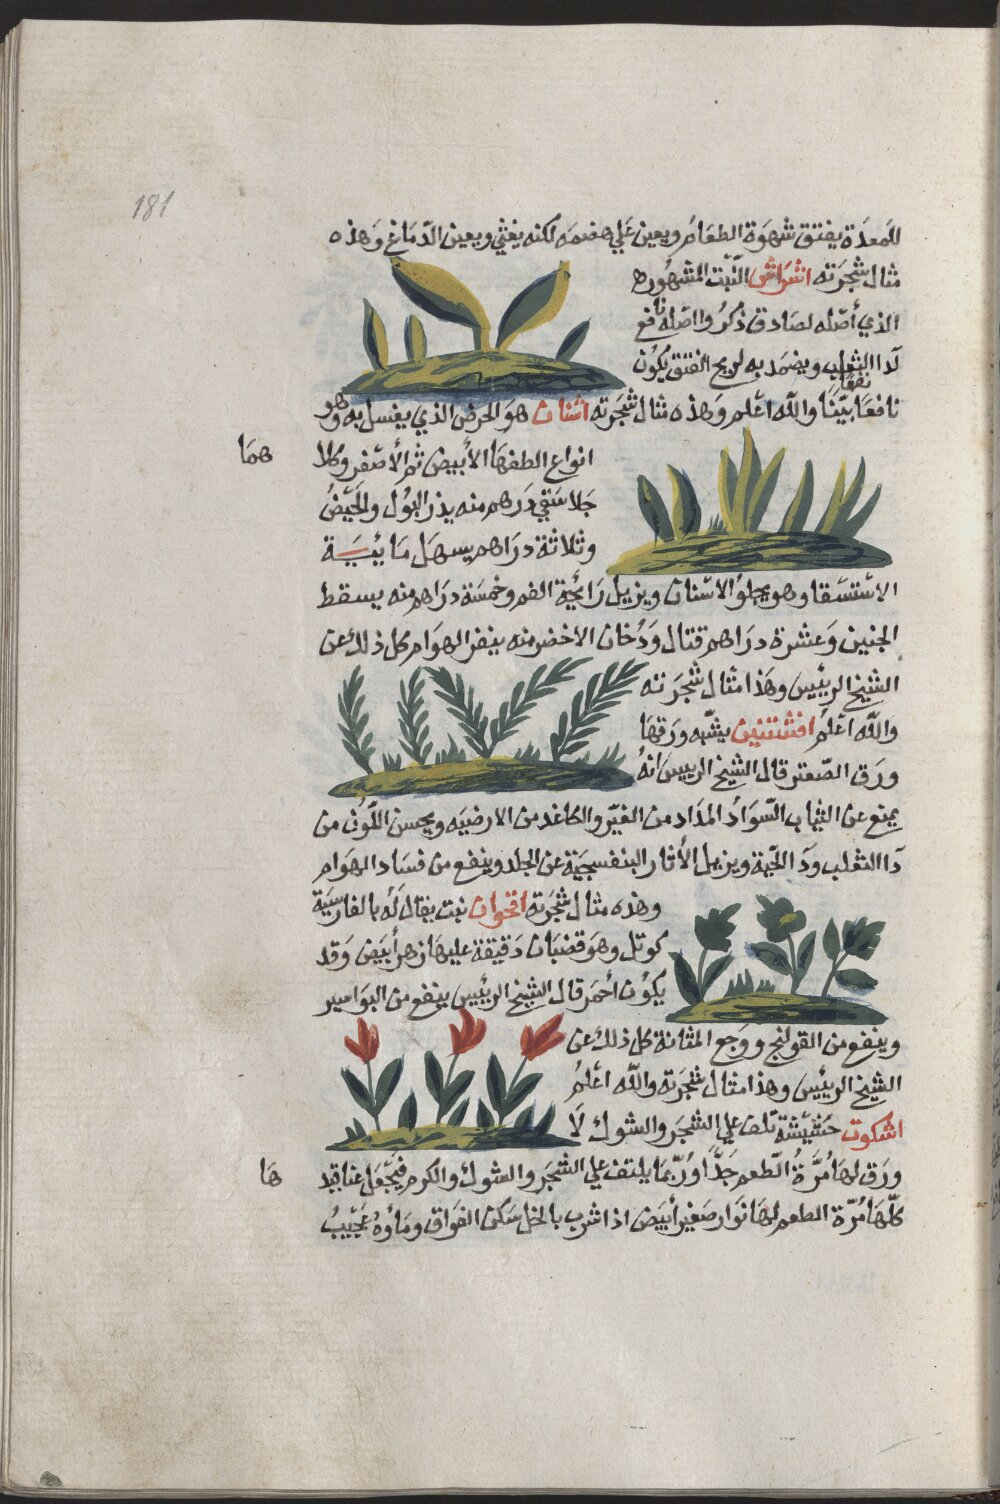 181
للمعدَة يفتق شهوَة الطعَام ويعين عَلي هضمَه لكنه يغثي ويعين الدّمَاغ وَهذه
مثال شجَرَته اشرَاش النّبت المشهُوره
الذي أصّله لصَادق ذكرُوا اصّله نافع
لدَا الثعلب ويضمَد به لريح الفتق يكُون
نفعًا
نافعًا بيّنًا والله اعْلم وَهذه مثال شجَرَته اشنان هوَ الحرض الذي يغسل به وَهُو
انواع الطفهَا الأبيض ثم الأصّفر وكلا
همَا
جَلا سَتقي دَرهم منه يذر البُول والحَيضُ
وثلاثة درَاهم يسهَل مَائيَة
الاسْتسّقا وهو يجلوُ الاسّنان ويزيل رَائحَة الفم وخمسَة درَاهم منه يسقط
الجنين وَعشرة درَاهم قتال وَدُخان الاخضر منه ينفر الهوَام كل ذلك عن
الشيخ الرييس وهَذا مثال شجَرَته
والله اعْلم افسنتين يشّبه ورَقهَا
ورَق الصّعتر قال الشيخ الرييس انهُ
يمنع عن الثياب السّوَادُ المدَاد من الغيّر والكاغد من الارضيَه ويحسن اللّون من
دَا الثعلب ودَا الحيّة ويزيل الأثار البنفسجيَة عن الجلد وينفع من فسَاد الهوَام
وهذه مثال شجَرَته اقحوان نبت يقال لَهُ بالفارسيَة
كوتل وهوَ قضبَان دَقيقة عليهَا زهر أبيَض وَقد
يكوُن أحمَر قال الشيخ الرييس ينفع من البوَاسير
وينفع من القولنج ووَجع المثانة كل ذلك عن
الشيخ الرييس وهذا مثال شجَرَته والله اعْلمُ
اشكوت حَشيشة تلف علي الشجَر والشوك لاَ
ورَق لهَا مُرَّةُ الطعم جَدًّا ورُبّمَا يلتف علي الشجَر والشوك والكرم فيَجعَل عناقيد
هَا
كلّهَا مُرّة الطعم لهَا نوَار صَغير أبيَض اذا شرب بالخل سَكن الفوَاق ومَاؤهُ عَجيْبُ